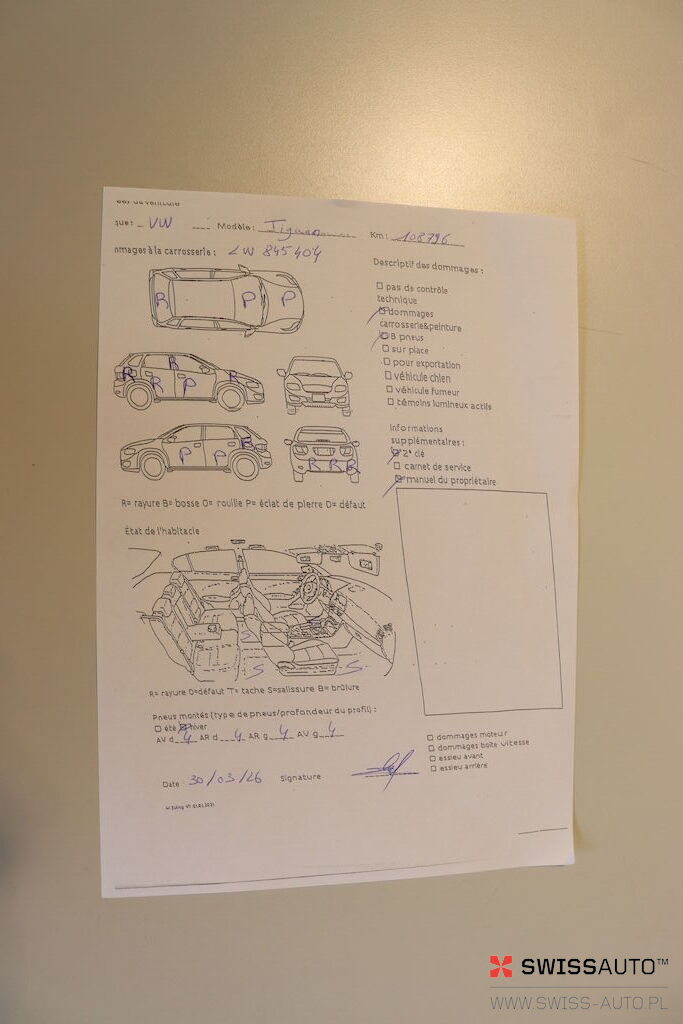 que : VW Modèle : Tiguan Km : 108796
mmages à la carrosserie : LW 845404
Descriptif des dommages :
R P P
☐ pas de contrôle
technique
☒ dommages
carrosserie&peinture
☒ 8 pneus
☐ sur place
☐ pour exportation
☐ véhicule chien
☐ véhicule fumeur
☐ témoins lumineux actifs
R R R P R
P P R
R R R
Informations
supplémentaires :
☒ 2° clé
☐ carnet de service
☒ manuel du propriétaire
R= rayure B= bosse O= rouille P= éclat de pierre D= défaut
État de l'habitacle
S
S S
R= rayure D=défaut T= tache S=salissure B= brûlure
Pneus montés (type de pneus/profondeur du profil) :
☐ été ☒ hiver
AV d 4 AR d 4 AR g 4 AV g 4
☐ dommages moteur
☐ dommages boîte vitesse
☐ essieu avant
☐ essieu arrière
Date : 30/03/26 Signature
SWISSAUTO™
WWW.SWISS-AUTO.PL